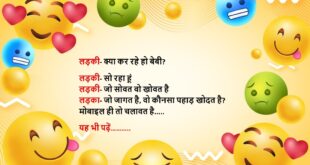 लड़की- क्या कर रहे हो बेबी?
लड़की- सो रहा हूं
लड़की- जो सोवत वो खोवत है
लड़का- जो जागत है, वो कौनसा पहाड़ खोदत है?
मोबाइल ही तो चलावत है.....
यह भी पढ़ें...........